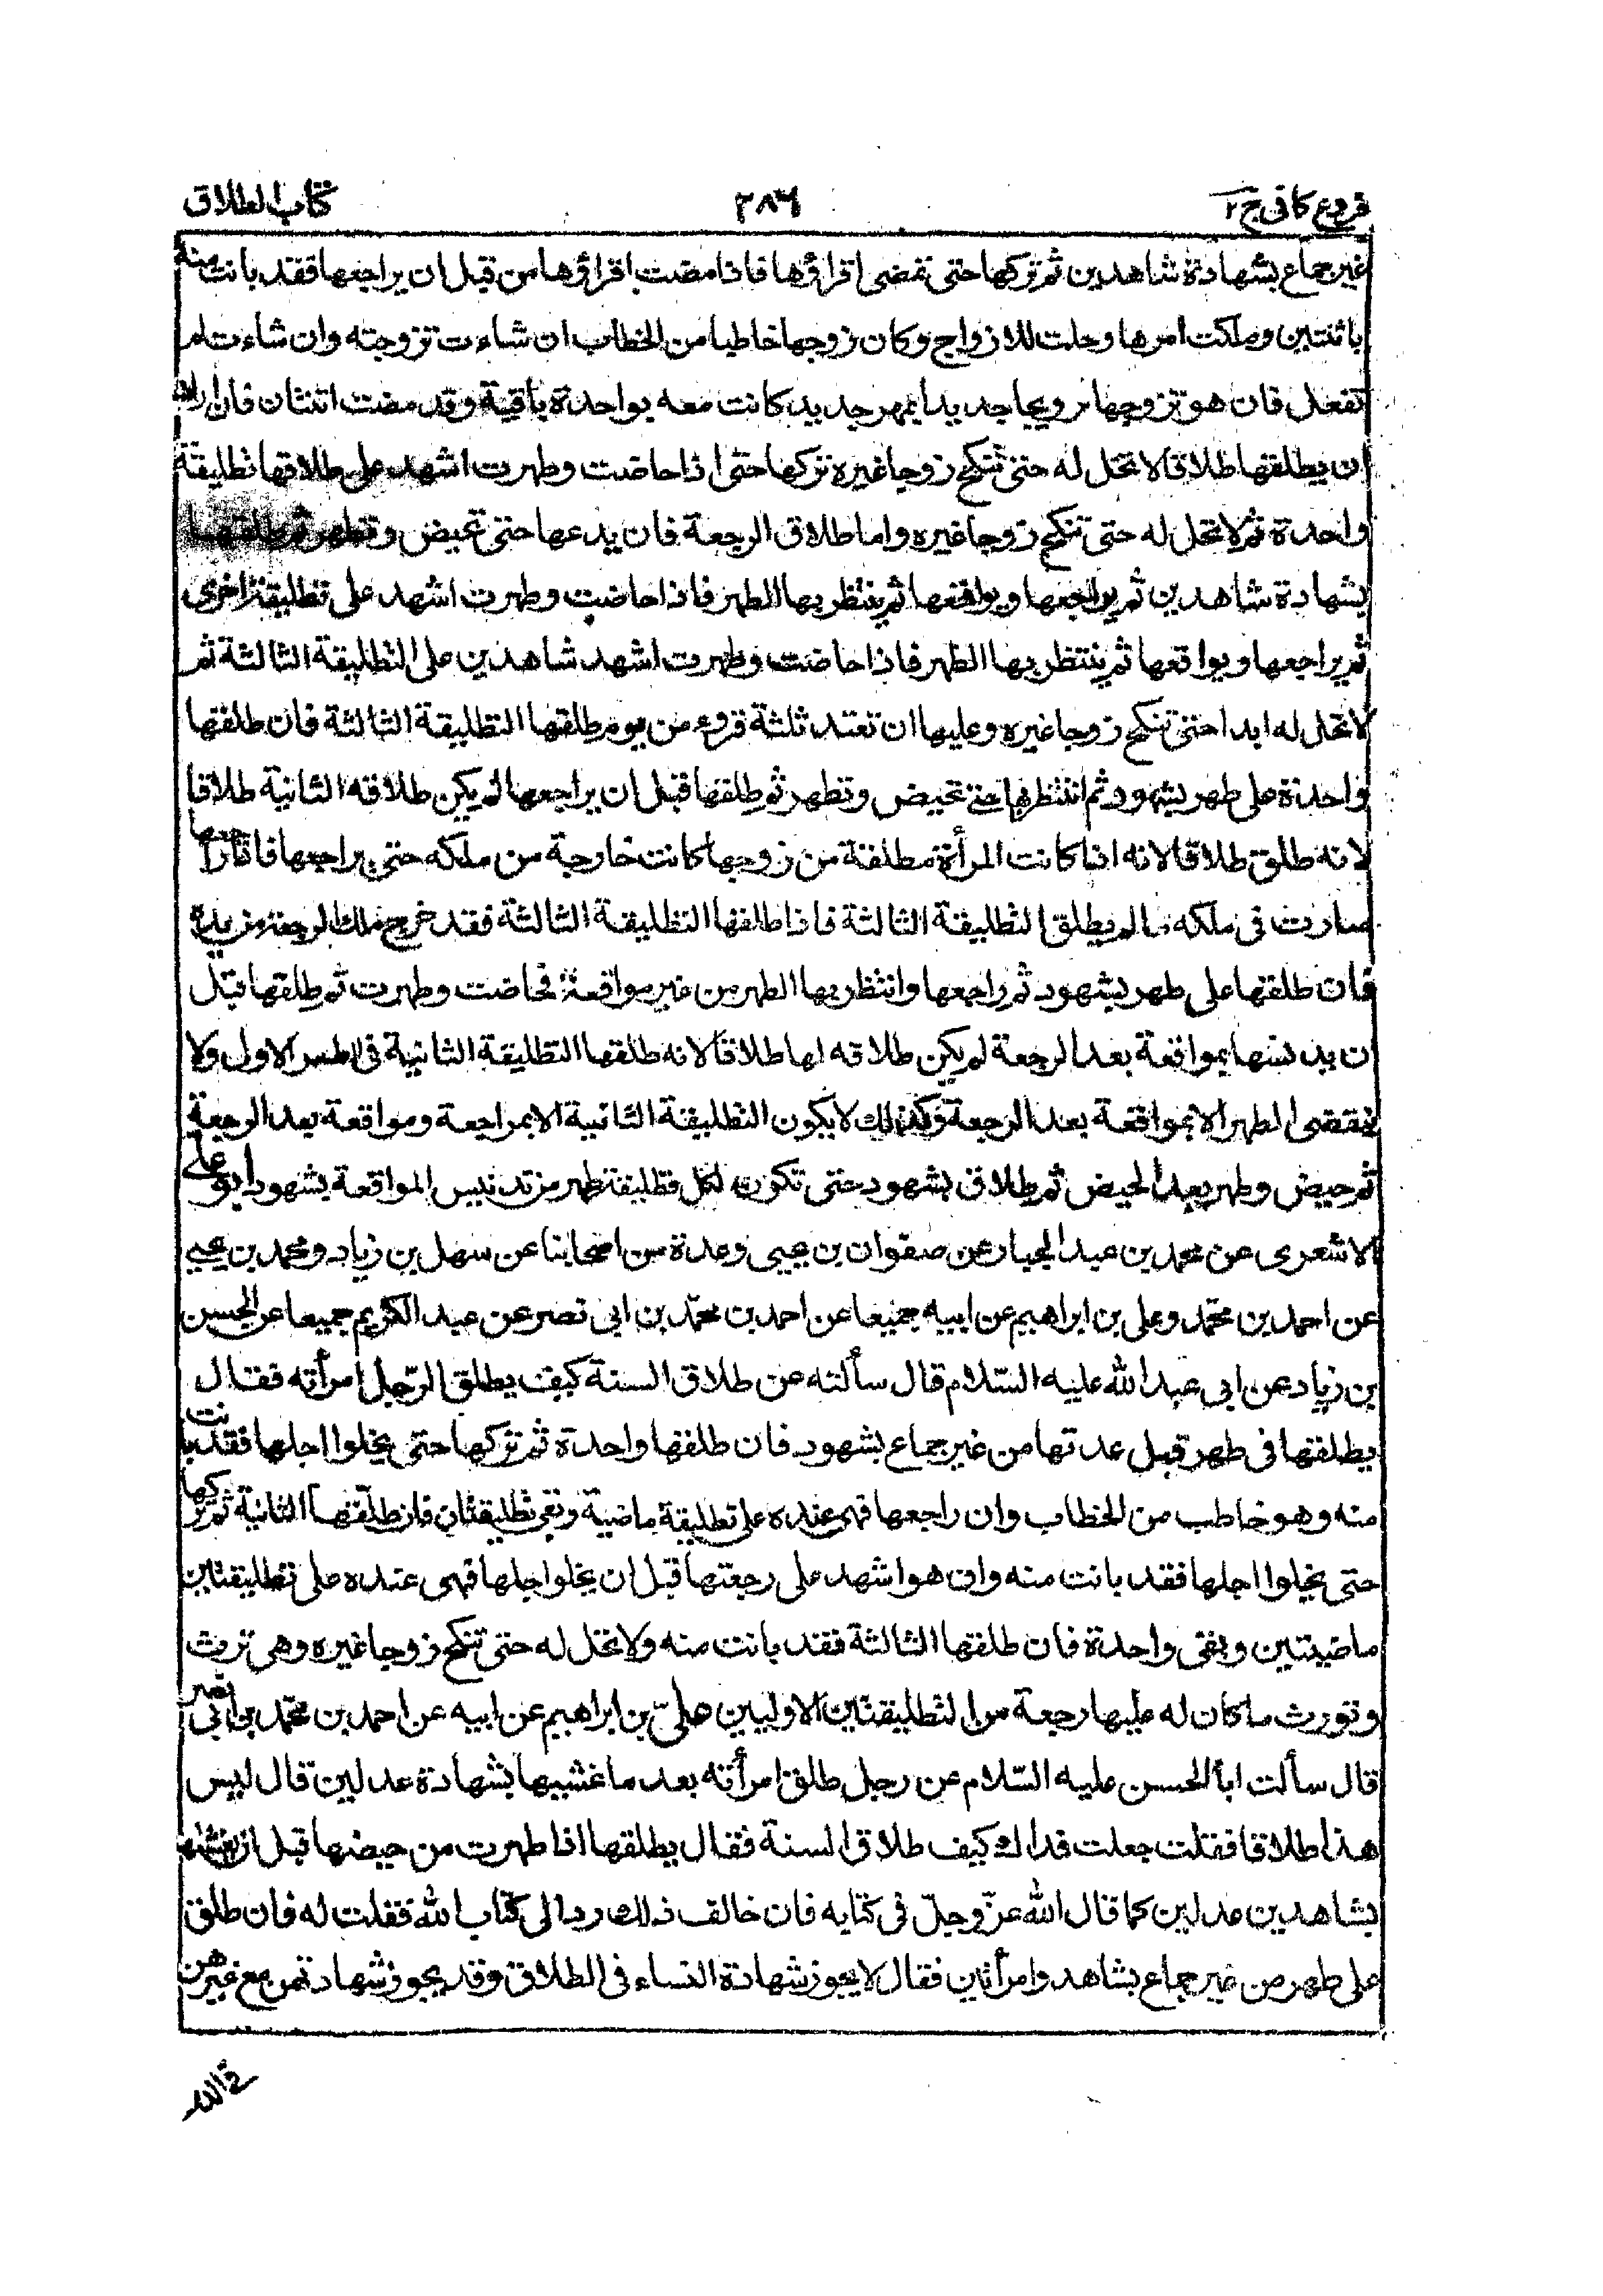 فروع كافى ج ٢
٢٨٦
كتاب الطلاق
غير جماع بشهادة شاهدين ثم تركها حتى تمضى اقراؤها فاذا مضت اقراؤها من قبل ان يراجعها فقد بانت منه
باثنتين وملكت امرها وحلت للازواج وكان زوجها خاطبا من الخطاب ان شاءت تزوجته وان شاءت لم
تفعل فان هو تزوجها تزويجا جديدا بمهر جديد كانت معه بواحدة باقية وقد مضت اثنتان فان اراد
ان يطلقها طلاقا لا تحل له حتى تنكح زوجا غيره تركها حتى اذا حاضت وطهرت اشهد على طلاقها تطليقة
واحدة ثم لا تحل له حتى تنكح زوجا غيره واما طلاق الرجعة فان يدعها حتى تحيض وتطهر ثم يطلقها
بشهادة شاهدين ثم يراجعها ويواقعها ثم ينتظر بها الطهر فاذا حاضت وطهرت اشهد على تطليقة اخرى
ثم يراجعها ويواقعها ثم ينتظر بها الطهر فاذا حاضت وطهرت اشهد شاهدين على التطليقة الثالثة ثم
لا تحل له ابدا حتى تنكح زوجا غيره وعليها ان تعتد ثلثة قروء من يوم طلقها التطليقة الثالثة فان طلقها
واحدة على طهر بشهود ثم انتظر بها حتى تحيض وتطهر ثم طلقها قبل ان يراجعها لم يكن طلاقه الثانية طلاقا
لانه طلق طلاقا لانه اذا كانت المرأة مطلقة من زوجها كانت خارجة من ملكه حتى يراجعها فاذا راجعها
صارت فى ملكه ما لم يطلق التطليقة الثالثة فاذا طلقها التطليقة الثالثة فقد خرج ملك الرجعة من يده
فان طلقها على طهر بشهود ثم راجعها وانتظر بها الطهر من غير مواقعة فحاضت وطهرت ثم طلقها قبل
ان يدنسها بمواقعة بعد الرجعة لم يكن طلاقه لها طلاقا لانه طلقها التطليقة الثانية فى الطهر الاول ولا
ينقضى الطهر الا بمواقعة بعد الرجعة وكذلك لا يكون التطليقة الثانية الا بمراجعة ومواقعة بعد الرجعة
ثم حيض وطهر بعد الحيض ثم طلاق بشهود حتى تكون لكل تطليقة طهر من تدنيس المواقعة بشهود ابو على
الاشعرى عن محمد بن عبد الجبار عن صفوان بن يحيى وعدة من اصحابنا عن سهل بن زياد ومحمد بن يحيى
عن احمد بن محمّد وعلى بن ابراهيم عن ابيه جميعا عن احمد بن محمّد بن ابى نصر عن عبد الكريم جميعا عن الحسن
بن زياد عن ابى عبد الله عليه السّلام قال سألته عن طلاق السنة كيف يطلق الرّجل امرأته فقال
يطلقها فى طهر قبل عدتها من غير جماع بشهود فان طلقها واحدة ثم تركها حتى يخلوا اجلها فقد بانت
منه وهو خاطب من الخطاب وان راجعها فهى عنده على تطليقة ماضية وبقى تطليقتان فان طلّقها الثانية ثم تركها
حتى يخلوا اجلها فقد بانت منه وان هو اشهد على رجعتها قبل ان يخلوا اجلها فهى عنده على تطليقتين
ماضيتين وبقى واحدة فان طلقها الثالثة فقد بانت منه ولا تحل له حتى تنكح زوجا غيره وهى ترث
وتورث ما كان له عليها رجعة من التطليقتين الاوليين علىّ بن ابراهيم عن ابيه عن احمد بن محمّد بن ابى نصر
قال سألت ابا الحسن عليه السّلام عن رجل طلق امرأته بعد ما غشيها بشهادة عدلين قال ليس
هذا طلاقا فقلت جعلت فداك كيف طلاق السنة فقال يطلقها اذا طهرت من حيضها قبل ان يغشاها
بشاهدين عدلين كما قال الله عزّ وجلّ فى كتابه فان خالف ذلك رد الى كتاب الله فقلت له فان طلق
على طهر من غير جماع بشاهد وامرأتين فقال لا يجوز شهادة النساء فى الطلاق وقد يجوز شهادتهن مع غيرهن